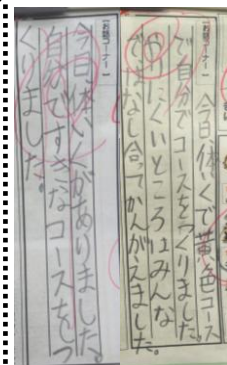 【お話コーナー】
今日体いくで黄色コース
で自分でコースをつくりました。
やりにくいところはみんな
ではなし合ってかんがえました。
【お話コーナー】
今日体いくがありました。
自分ですきなコースをつ
くりました。